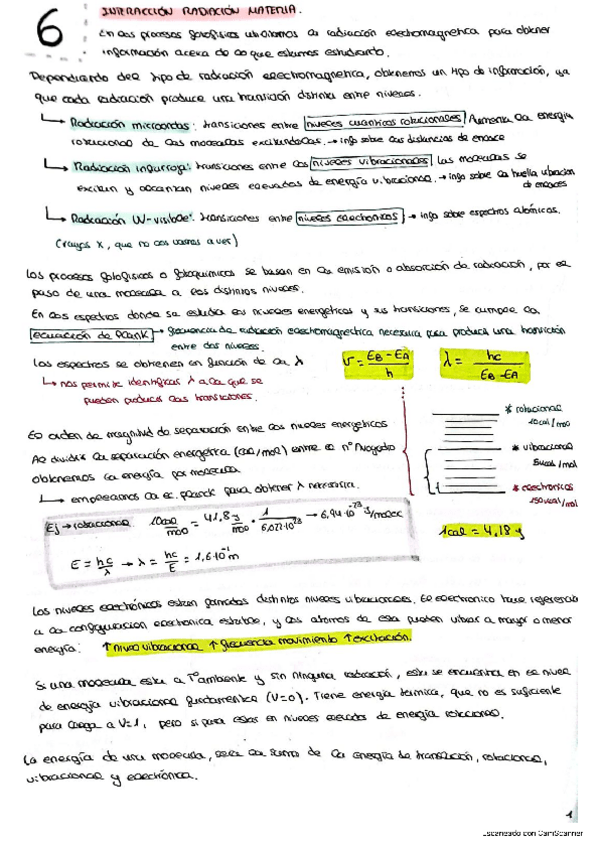 6
INTERACCIÓN RADIACIÓN MATERIA.
En los procesos fotofísicos utilizamos la radiación electromagnética para obtener
información acerca de lo que estamos estudiando.
Dependiendo del tipo de radiación electromagnética, obtenemos un tipo de información, ya
que cada radiación produce una transición distinta entre niveles.
↳ Radiación microondas: transiciones entre niveles cuánticos rotacionales. Aumenta la energía
rotacional de las moléculas excitándolas. → info sobre las distancias de enlace
↳ Radiación infrarroja: transiciones entre los niveles vibracionales. Las moléculas se
excitan y alcanzan niveles elevados de energía vibracional. → info sobre la huella vibracion
de enlaces
↳ Radiación UV-visible: transiciones entre niveles electrónicos → info sobre espectros atómicos.
(rayos X, que no los vamos a ver)
Los procesos fotofísicos o fotoquímicos se basan en la emisión o absorción de radiación, por el
paso de una molécula a los distintos niveles.
En los espectros donde se estudia los niveles energéticos y sus transiciones, se cumple la
ecuación de Planck → frecuencia de radiación electromagnética necesaria para producir una transición
entre dos niveles.
Los espectros se obtienen en función de la λ
↳ nos permite identificar λ a la que se
pueden producir las transiciones.
ν = (E_B - E_A)/h
λ = hc/(E_B - E_A)
El orden de magnitud de separación entre los niveles energéticos
Al dividir la separación energética (cal/mol) entre el nº Avogadro
obtenemos la energía por molécula
↳ empleamos la ec. planck para obtener λ necesaria.
* rotacional
10 cal/mol
* vibracional
5 kcal/mol
* electrónicos
150 kcal/mol
Ej → rotacional 10cal/mol = 41,8 J/mol · 1/6,022·10²³ → 6,94·10⁻²³ J/molec
E = hc/λ → λ = hc/E = 1,6·10⁻¹ m
1cal = 4,18 J
Los niveles electrónicos están formados distintos niveles vibracionales. El electrónico hace referencia
a la configuración electrónica estable, y los átomos de esa pueden vibrar a mayor o menor
energía: ↑ nivel vibracional ↑ frecuencia movimiento ↑ excitación.
Si una molécula está a Tª ambiente y sin ninguna radiación, esta se encuentra en el nivel
de energía vibracional fundamental (V=0). Tiene energía térmica, que no es suficiente
para llegar a V=1, pero si para estar en niveles elevados de energía rotacional.
La energía de una molécula, será la suma de la energía de translación, rotacional,
vibracional y electrónica.
1
Escaneado con CamScanner